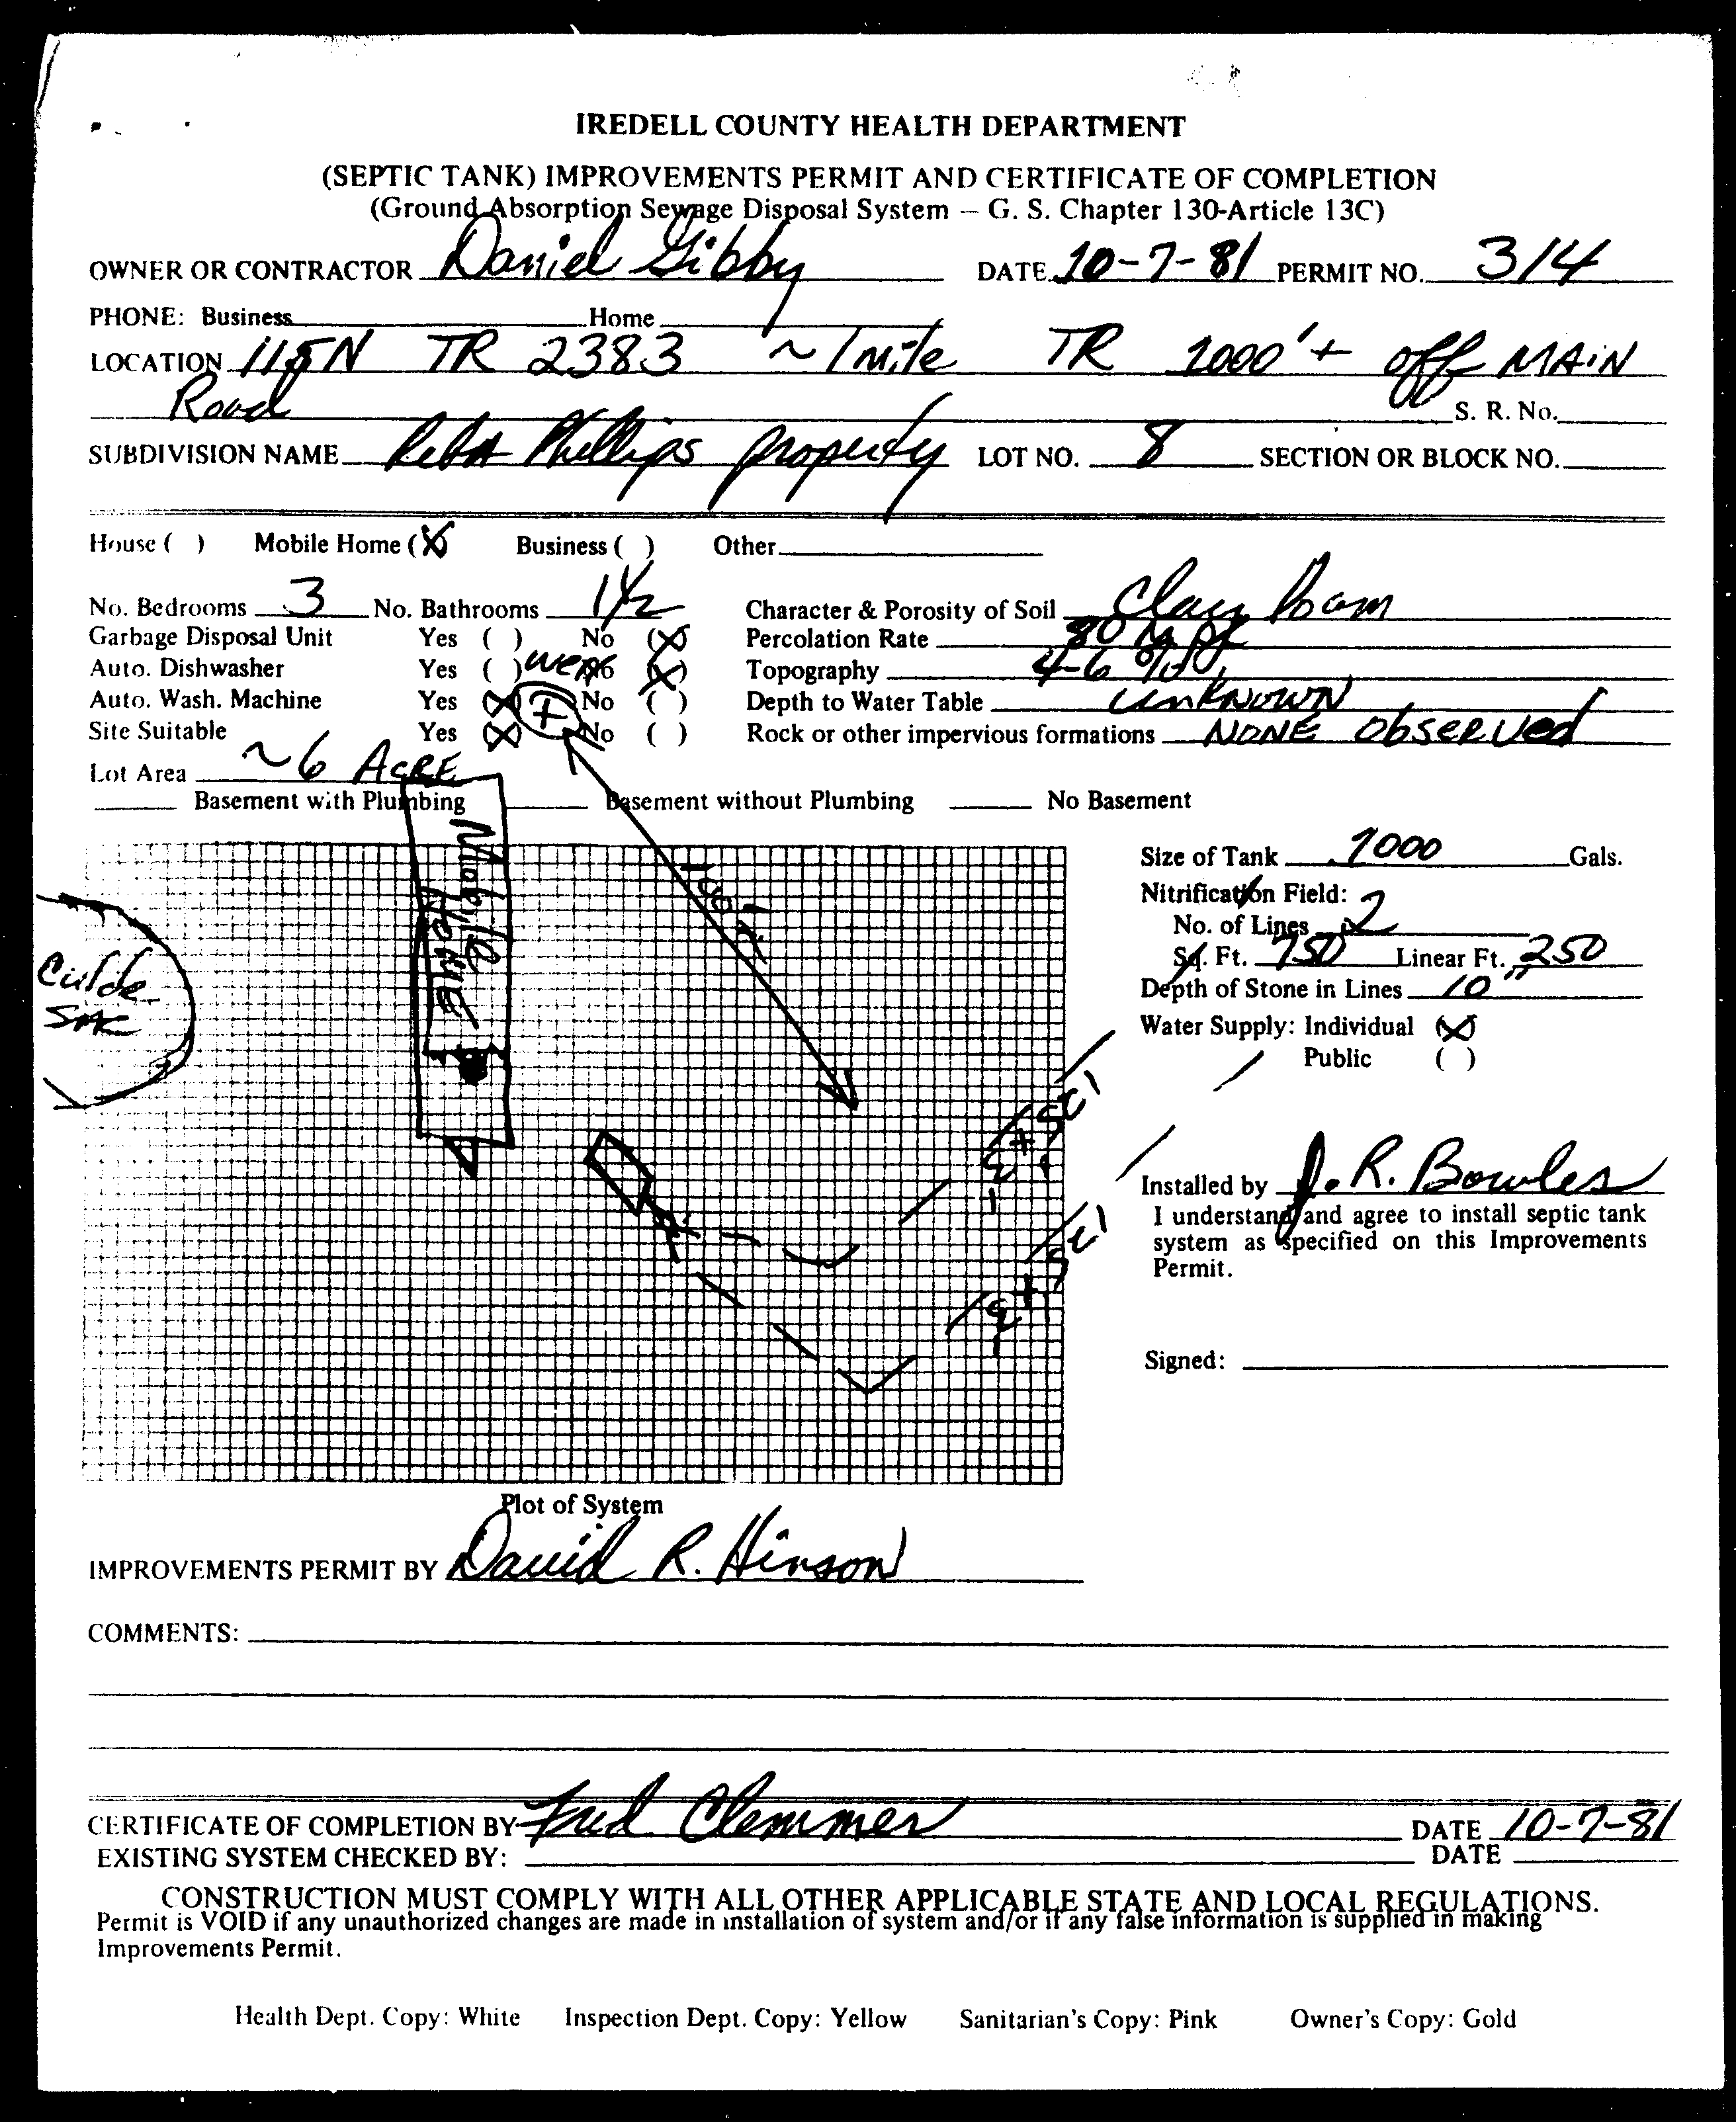 IREDELL COUNTY HEALTH DEPARTMENT
(SEPTIC TANK) IMPROVEMENTS PERMIT AND CERTIFICATE OF COMPLETION
(Ground Absorption Sewage Disposal System — G. S. Chapter 130-Article 13C)
OWNER OR CONTRACTOR Daniel Gibby DATE 10-7-81 PERMIT NO. 314
PHONE: Business Home
LOCATION 115N TR 2383 ~1 mile TR 1000'+ off MAIN
Road S. R. No.
SUBDIVISION NAME Reba Phillips property LOT NO. 8 SECTION OR BLOCK NO.
House ( ) Mobile Home (X) Business ( ) Other
No. Bedrooms 3 No. Bathrooms 1½ Character & Porosity of Soil Clay loam
Garbage Disposal Unit Yes ( ) No (X) Percolation Rate 80
Auto. Dishwasher Yes ( ) No (X) Topography 4-6 %
Auto. Wash. Machine Yes (X) No ( ) Depth to Water Table unknown
Site Suitable Yes (X) No ( ) Rock or other impervious formations NONE observed
Lot Area ~6 ACRE
Basement with Plumbing Basement without Plumbing No Basement
Mobile Home
100'+
Culde Sac
125'
x 3'
125'
x 3'
Size of Tank 1000 Gals.
Nitrification Field:
No. of Lines 2
Sq. Ft. 750 Linear Ft. 250
Depth of Stone in Lines 10"
Water Supply: Individual (X)
Public ( )
Installed by J. R. Bowles
I understand and agree to install septic tank
system as specified on this Improvements
Permit.
Signed:
Plot of System
IMPROVEMENTS PERMIT BY David R. Hinson
COMMENTS:
CERTIFICATE OF COMPLETION BY Fred Clemmer DATE 10-7-81
EXISTING SYSTEM CHECKED BY: DATE
CONSTRUCTION MUST COMPLY WITH ALL OTHER APPLICABLE STATE AND LOCAL REGULATIONS.
Permit is VOID if any unauthorized changes are made in installation of system and/or if any false information is supplied in making
Improvements Permit.
Health Dept. Copy: White Inspection Dept. Copy: Yellow Sanitarian's Copy: Pink Owner's Copy: Gold